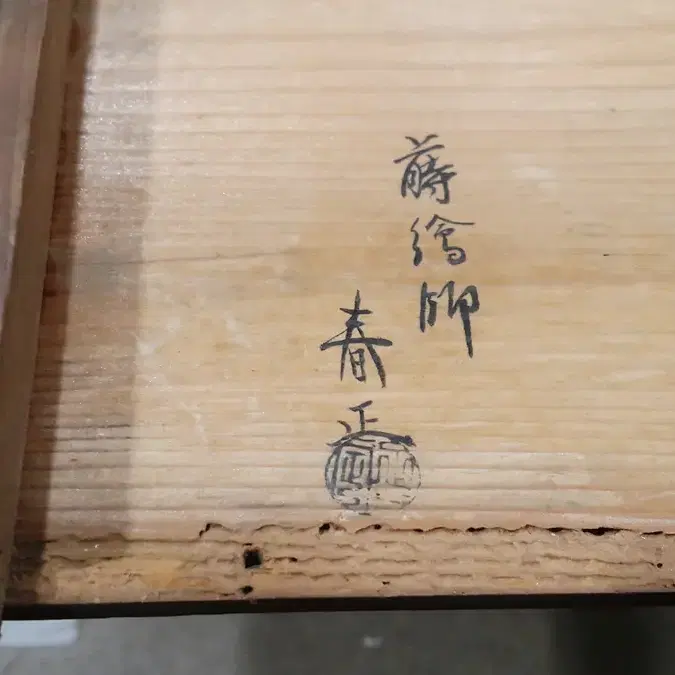 蒔繪師
春正